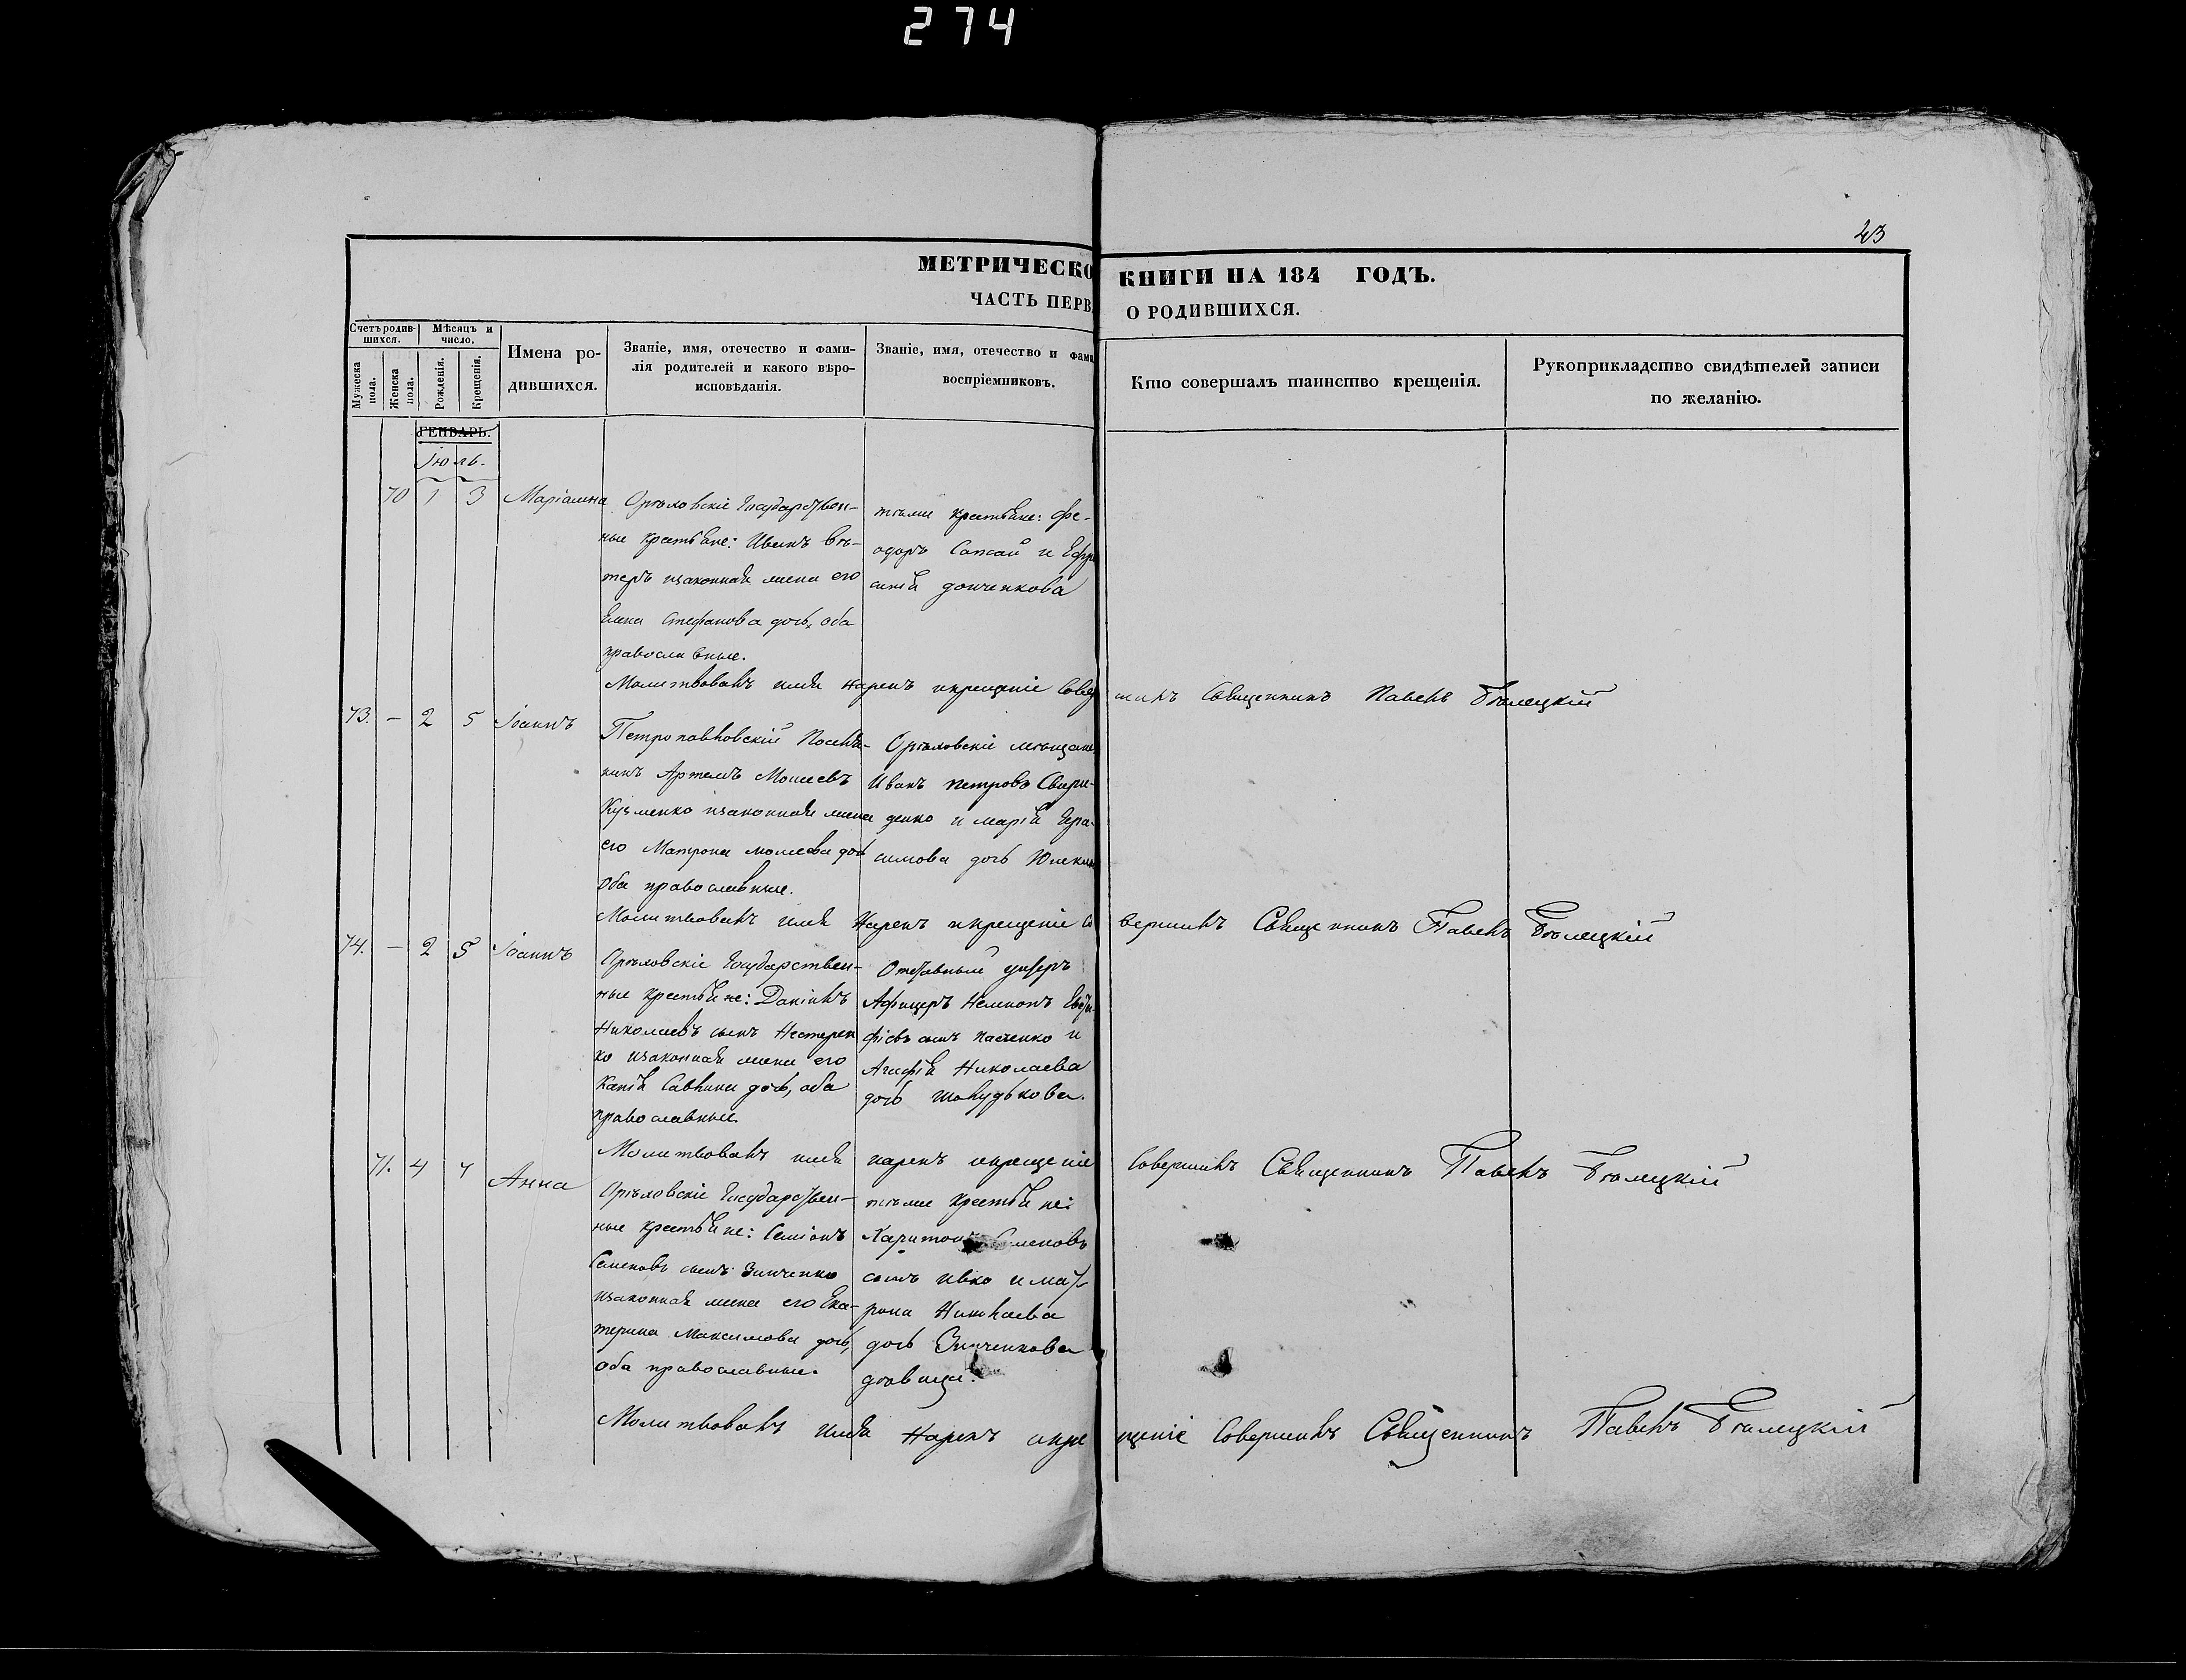 274
43
МЕТРИЧЕСКО КНИГИ НА 184 ГОДЪ.
ЧАСТЬ ПЕРВ О РОДИВШИХСЯ.
Счетъ родив-
шихся.
Мѣсяцъ и
число.
Мужеска пола.
Женска пола.
Рожденія.
Крещенія.
Имена ро-
дившихся.
Званіе, имя, отечество и фами-
лія родителей и какого вѣро-
исповѣданія.
Званіе, имя, отечество и фами
воспріемниковъ.
Кто совершалъ таинство крещенія.
Рукоприкладство свидѣтелей записи
по желанію.
ГЕНВАРЬ.
Іюль.
70 1 3 Маріамна
Орѣховскіе Государствен-
ные крестьяне: Иванъ
изаконная жена его
Елена Стефанова дочь, оба
православные.
тѣже крестьяне: Фе-
одоръ Сапсай и Ефро
синія Донченкова
Молитвовалъ имя нарекъ икрещеніе Совер шилъ Священникъ Павелъ Бѣлецкій
73. — 2 5 Іоаннъ
Петропавловскій Поселя-
нинъ Артемъ Моисеевъ
Кузменко изаконная жена
его Матрона дочь
оба православные.
Орѣховскіе мѣщане
Иванъ Петровъ Свири-
денко и Марія Гера-
симова дочь
Молитвовалъ имя Нарекъ икрещеніе Со вершилъ Священникъ Павелъ Бѣлецкій
74. — 2 5 Іоаннъ
Орѣховскіе Государствен-
ные крестьяне: Даніилъ
Николаевъ сынъ Нестерен
ко изаконная жена его
Саввина дочь, оба
православные.
Отставный унтеръ
Афицеръ Евста-
фіевъ сынъ и
Агафія Николаева
дочь
Молитвовалъ имя нарекъ икрещеніе Совершилъ Священникъ Павелъ Бѣлецкій
71. 4 Анна
Орѣховскіе Государствен-
ные крестьяне: Семіонъ
Семеновъ сынъ Зинченко
изаконная жена его Ека-
терина Максимова дочь,
оба православные.
тѣже крестьяне:
Харитонъ Семеновъ
сынъ Ивко и Мат-
рона
дочь Зинченкова
дѣвица.
Молитвовалъ имя Нарекъ икре щеніе Совершилъ Священникъ Павелъ Бѣлецкій